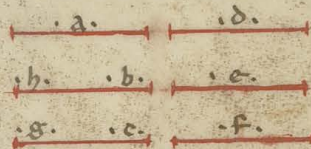 ·a· ·d·
·h· ·b· ·e·
·g· ·c· ·f·